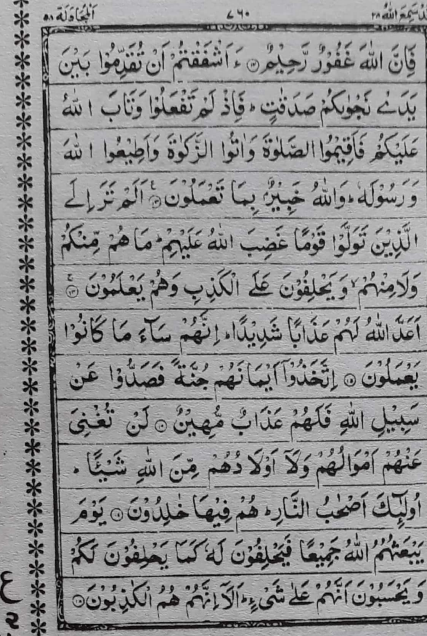 قد سمع الله ٢٨ ٧٦٠ المجادلة ٥٨
فَاِنَّ اللّٰهَ غَفُوْرٌ رَّحِيْمٌ ۝ ءَاَشْفَقْتُمْ اَنْ تُقَدِّمُوْا بَيْنَ
يَدَىْ نَجْوٰىكُمْ صَدَقٰتٍ ؕ فَاِذْ لَمْ تَفْعَلُوْا وَتَابَ اللّٰهُ
عَلَيْكُمْ فَاَقِيْمُوا الصَّلٰوةَ وَاٰتُوا الزَّكٰوةَ وَاَطِيْعُوا اللّٰهَ
وَرَسُوْلَهٗ ؕ وَاللّٰهُ خَبِيْرٌۢ بِمَا تَعْمَلُوْنَ ۝ اَلَمْ تَرَ اِلَى
الَّذِيْنَ تَوَلَّوْا قَوْمًا غَضِبَ اللّٰهُ عَلَيْهِمْ ؕ مَا هُمْ مِّنْكُمْ
وَلَا مِنْهُمْ ۙ وَيَحْلِفُوْنَ عَلَى الْكَذِبِ وَهُمْ يَعْلَمُوْنَ ۝
اَعَدَّ اللّٰهُ لَهُمْ عَذَابًا شَدِيْدًا ؕ اِنَّهُمْ سَآءَ مَا كَانُوْا
يَعْمَلُوْنَ ۝ اِتَّخَذُوْٓا اَيْمَانَهُمْ جُنَّةً فَصَدُّوْا عَنْ
سَبِيْلِ اللّٰهِ فَلَهُمْ عَذَابٌ مُّهِيْنٌ ۝ لَنْ تُغْنِىَ
عَنْهُمْ اَمْوَالُهُمْ وَلَآ اَوْلَادُهُمْ مِّنَ اللّٰهِ شَيْـًٔا ؕ
اُولٰٓئِكَ اَصْحٰبُ النَّارِ ؕ هُمْ فِيْهَا خٰلِدُوْنَ ۝ يَوْمَ
يَبْعَثُهُمُ اللّٰهُ جَمِيْعًا فَيَحْلِفُوْنَ لَهٗ كَمَا يَحْلِفُوْنَ لَكُمْ
وَيَحْسَبُوْنَ اَنَّهُمْ عَلٰى شَىْءٍ ؕ اَلَآ اِنَّهُمْ هُمُ الْكٰذِبُوْنَ ۝
ع